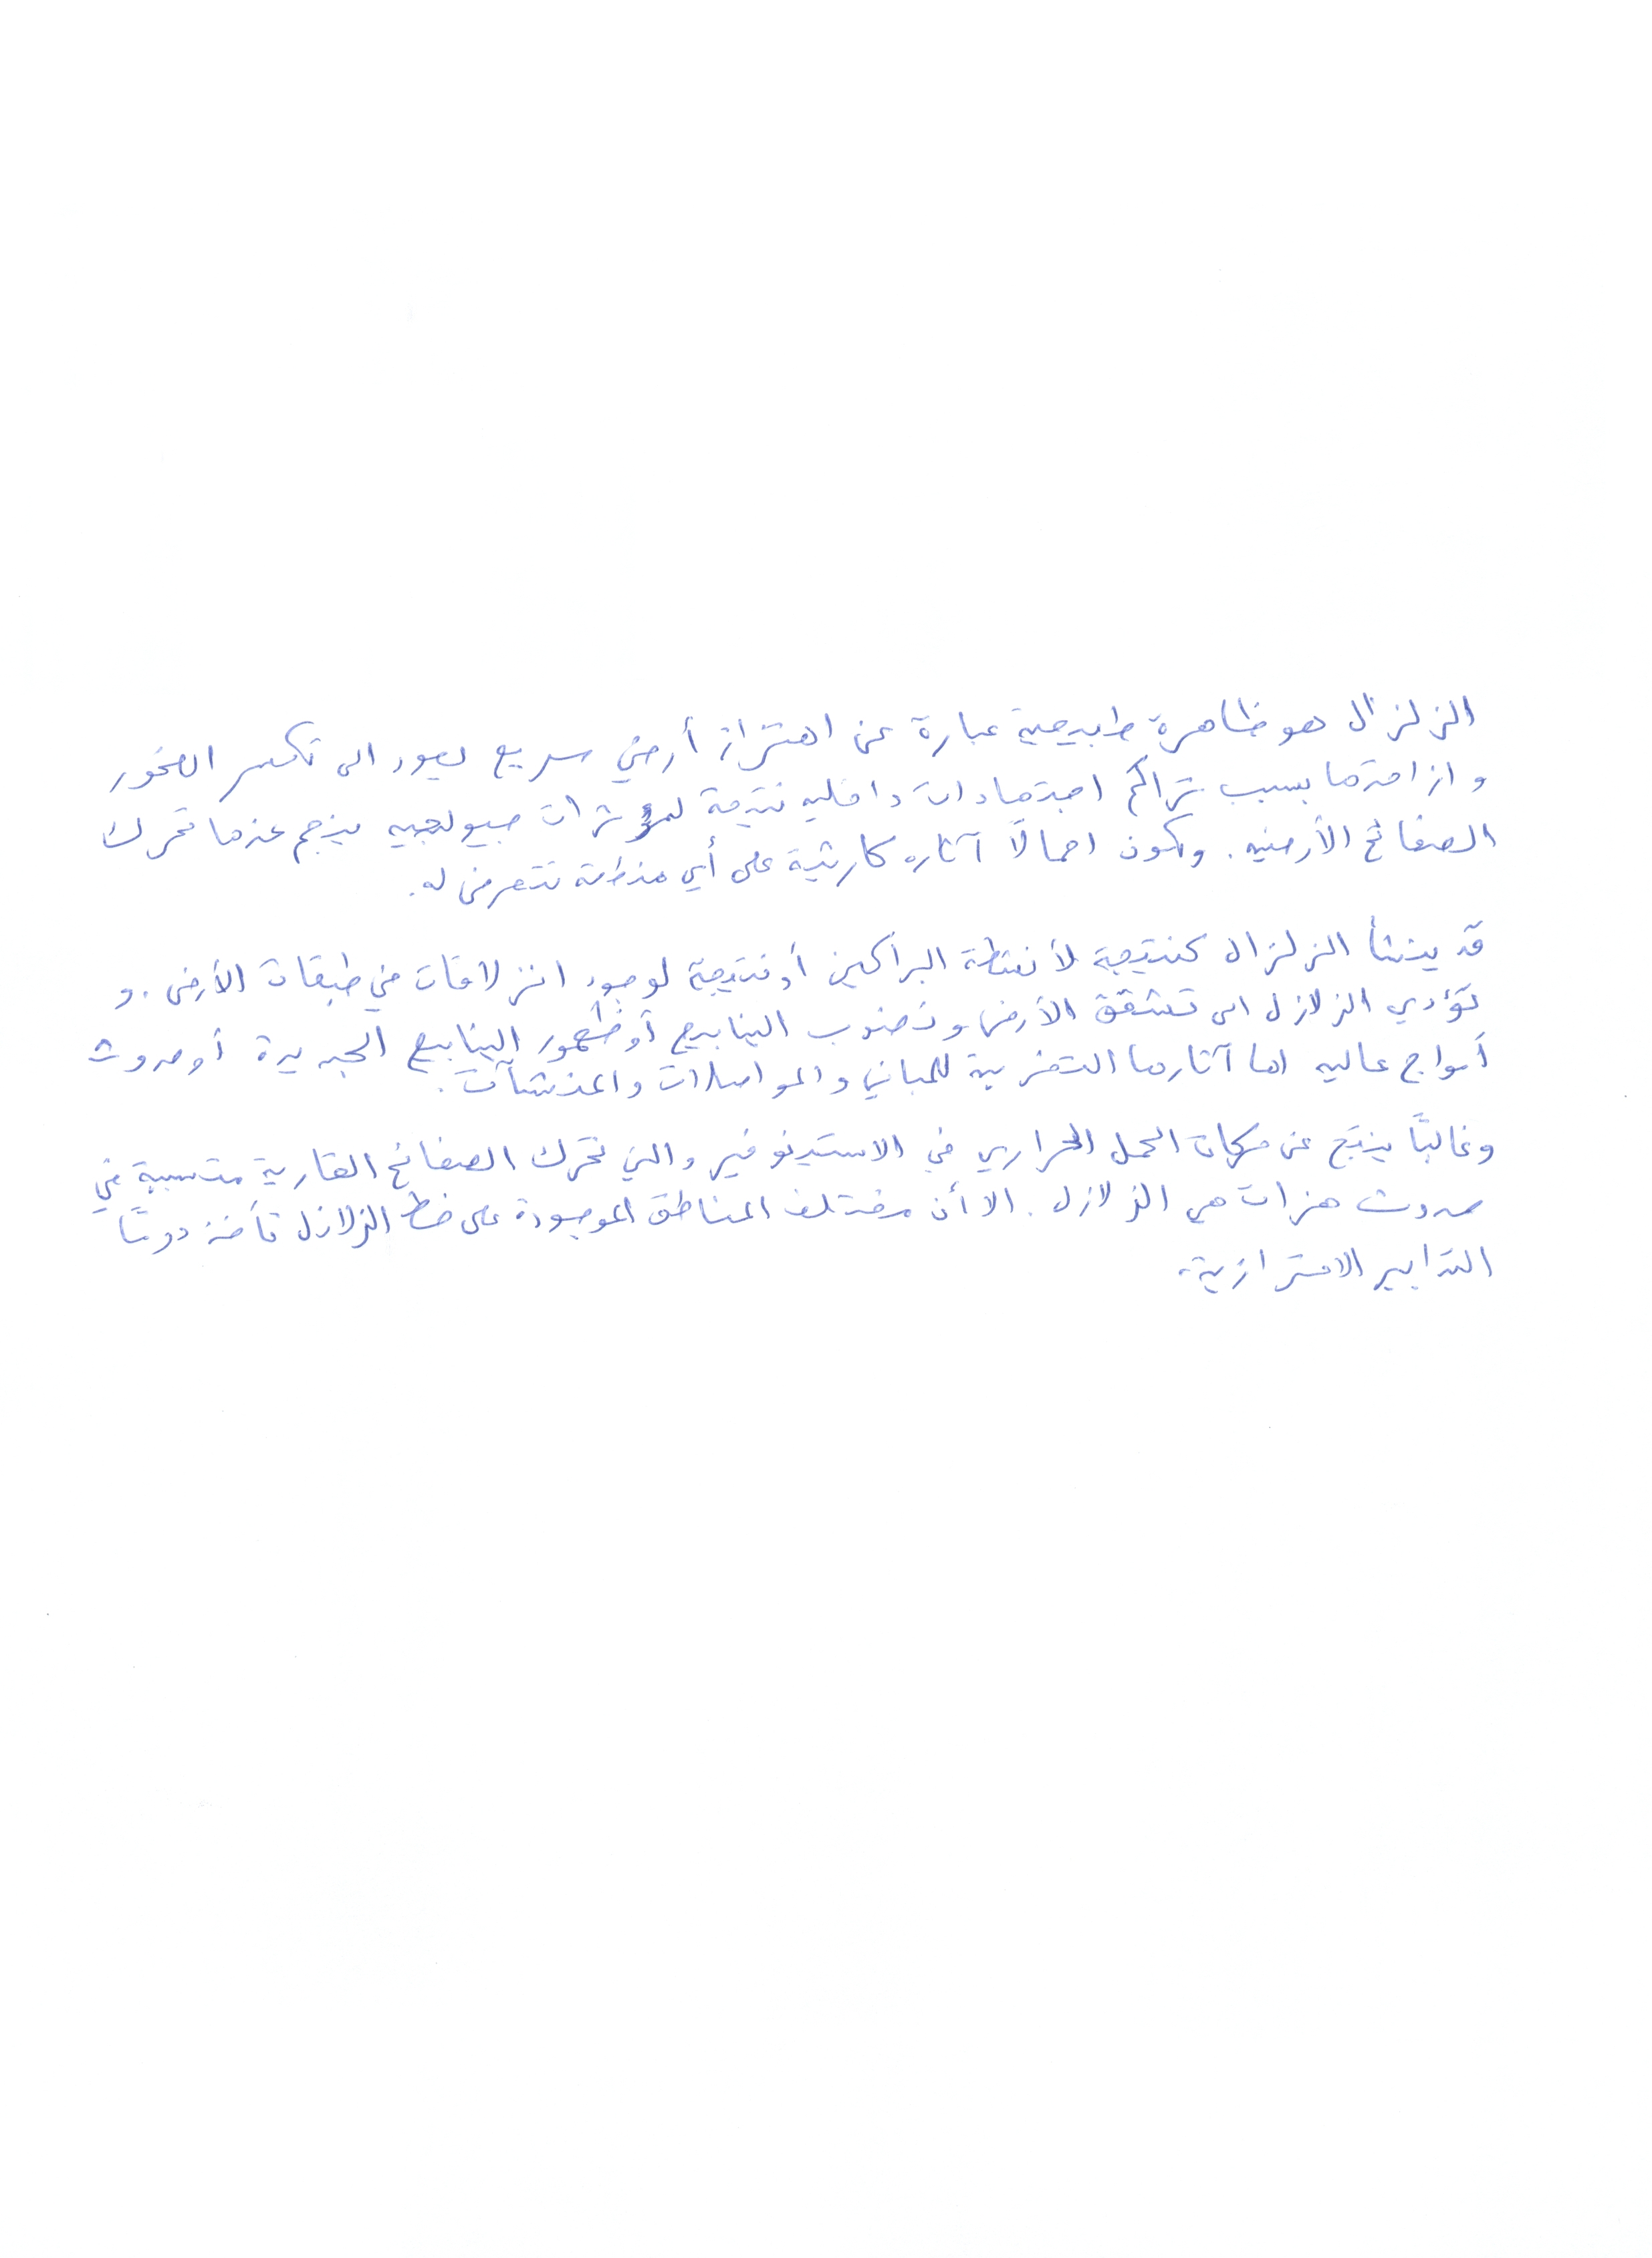 الزلزال هو ظاهرة طبيعية عبارة عن اهتزاز أرضي سريع يعود الى تكسر الصخور
وازاحتها بسبب تراكم اجتهادات داخليه نتيجة لمؤثرات جيولجيه ينجم عندها تحرك
الصفائح الأرضيه. وتكون اجمالاً آثاره كارثية على أي منطقة تتعرض له.
قد ينشأ الزلزال كنتيجة لأنشطة البراكين أو نتيجة لوجود انزلاقات في طبقات الأرض. و
تؤدي الزلازل الى تشقق الأرض ونضوب الينابيع أو ظهور الينابيع الجديدة أو حدوث
أمواج عاليه اما آثارها التخريبية للمباني والمواصلات والمنشآت.
وغالباً ينتج عن حركات الحمل الحراري في الاستينوفير والتي تحرك الصفائح القارية متسببة في
حدوث هزات هي الزلازل. الا أن مختلف المناطق الموجودة على خط الزلازل تأخذ دوماً
التدابير الاحترازية.